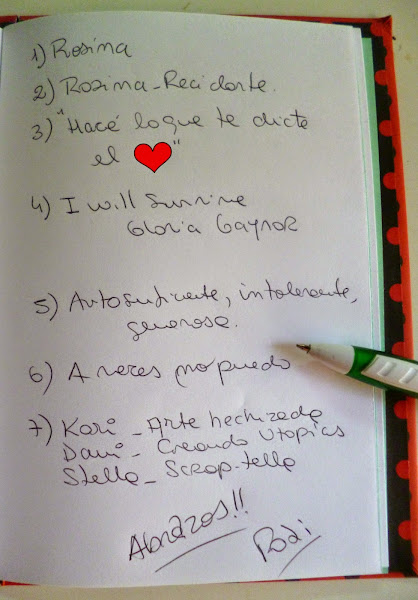 1) Rosina
2) Rozima_Recidarte.
3) "Hacé lo que te dicte
el ❤"
4) I will Survive
Gloria Gaynor
5) Autosuficiente, intolerante,
generosa.
6) A veces no puedo
7) Kari _ Arte hechizada
Dani _ Creando Utopías
Stella _ Scrap-tella
Abrazos!!
Rozi